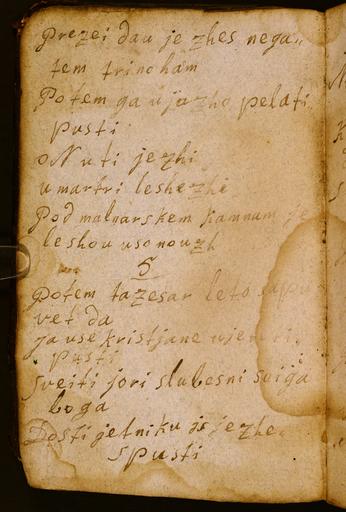 Prezei dan je zhes nega„
tem trinoham
Potem ga u jezho pelati„
pusti
oN v ti jezhi
u martri leshezhi
Pod malnarskem kamnam je
leshou uso nouzh
5
Potem ta zesar leto sapo
vet da
ja use kristjane vjem ri„
pusti
Sveiti jori slubesni suiga
boga
Dosti jetniku is jezhe„
spusti